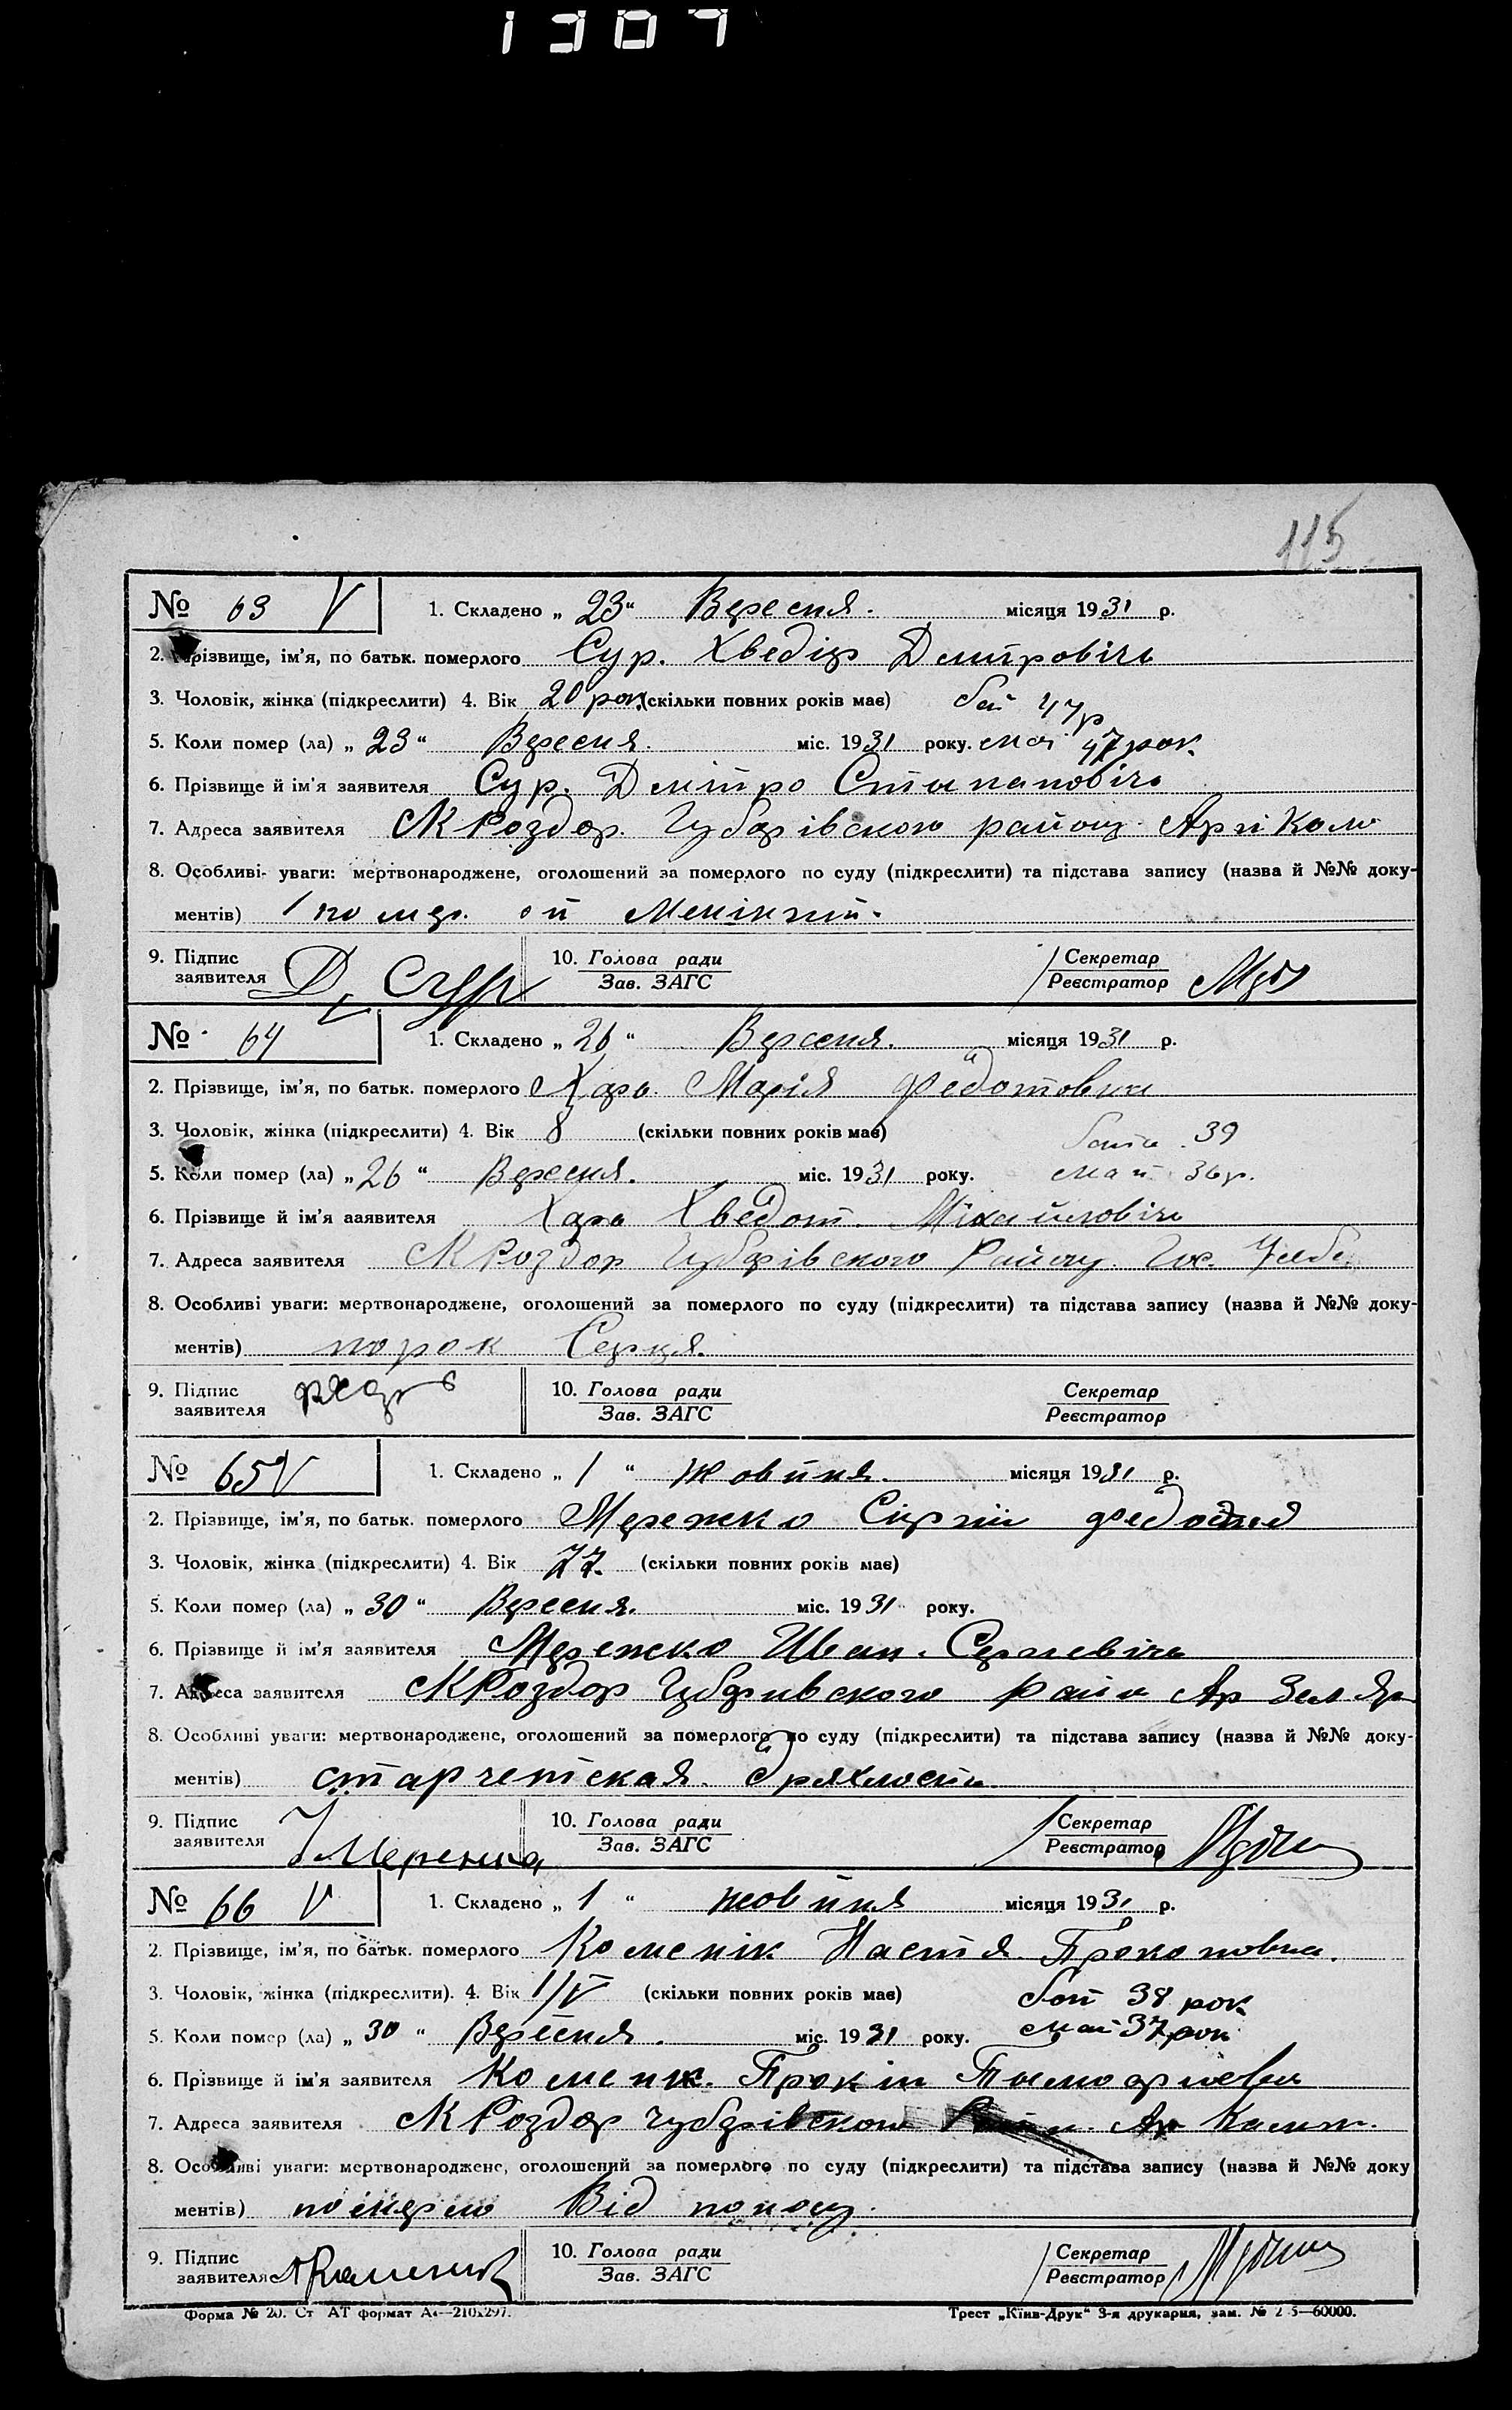 1307
115
№ 63 V 1. Складено „ 23 “ Вересня. місяця 1931 р.
2. Прізвище, ім’я, по батьк. померлого Сур. Хведір Дмітровічь
3. Чоловік, жінка (підкреслити) 4. Вік 20 рок (скільки повних років має) 47р
5. Коли помер (ла) „ 23 “ Вересня. міс. 1931 року. мат 47 рок.
6. Прізвище й ім’я заявителя Сур. Дмітро Степановічь
7. Адреса заявителя М Роздор. Чубарівского району
8. Особливі уваги: мертвонароджене, оголошений за померлого по суду (підкреслити) та підстава запису (назва й №№ доку-
ментів) помер. Менінгіт.
9. Підпис заявителя Д Сур 10. Голова ради Секретар
Зав. ЗАГС Реєстратор
№ 64 1. Складено „ 26 “ Вересня. місяця 1931 р.
2. Прізвище, ім’я, по батьк. померлого Царь. Марія Федотовна
3. Чоловік, жінка (підкреслити) 4. Вік 8 (скільки повних років має) 39
5. Коли помер (ла) „ 26 “ Вересня. міс. 1931 року. мат 36р.
6. Прізвище й ім’я заявителя Царь Хведот. Міхайловічь
7. Адреса заявителя М Роздор Чубарівского Району.
8. Особливі уваги: мертвонароджене, оголошений за померлого по суду (підкреслити) та підстава запису (назва й №№ доку-
ментів) порок Серця.
9. Підпис заявителя 10. Голова ради Секретар
Зав. ЗАГС Реєстратор
№ 65 V 1. Складено „ 1 “ Жовтня. місяця 1931 р.
2. Прізвище, ім’я, по батьк. померлого Мережко Сергій
3. Чоловік, жінка (підкреслити) 4. Вік 77. (скільки повних років має)
5. Коли помер (ла) „ 30 “ Вересня. міс. 1931 року.
6. Прізвище й ім’я заявителя Мережко Иван. Сергіевічь
7. Адреса заявителя М Роздор Чубаривского
8. Особливі уваги: мертвонароджене, оголошений за померлого по суду (підкреслити) та підстава запису (назва й №№ доку-
ментів) старчетская. дряхлость
9. Підпис заявителя 10. Голова ради Секретар
Зав. ЗАГС Реєстратор
№ 66 V 1. Складено „ 1 “ жовтня місяця 1931 р.
2. Прізвище, ім’я, по батьк. померлого Коменік Настя Проковна.
3. Чоловік, жінка (підкреслити). 4. Вік (скільки повних років має) бат 38 рок
5. Коли помер (ла) „ 30 “ Вересня. міс. 1931 року. мат 37 рок
6. Прізвище й ім’я заявителя Коменик. Прокіп
7. Адреса заявителя М Роздор Чубарівского
8. Особливі уваги: мертвонароджене, оголошений за померлого по суду (підкреслити) та підстава запису (назва й №№ доку
ментів) померло Від поносу.
9. Підпис заявителя 10. Голова ради Секретар
Зав. ЗАГС Реєстратор
Форма № 20. Ст АТ формат А4—210x297. Трест „Київ-Друк“ 3-я друкарня, зам. № 2 5—60000.